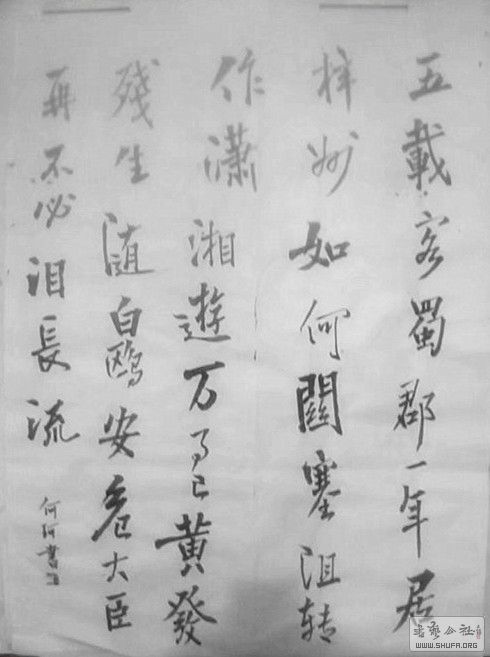 五載客蜀郡一年居
梓州如何關塞阻转
作潇湘遊万事已黄發
殘生随白鷗安危大臣
再不必泪長流
書
書法公社
WWW.SHUFA.ORG